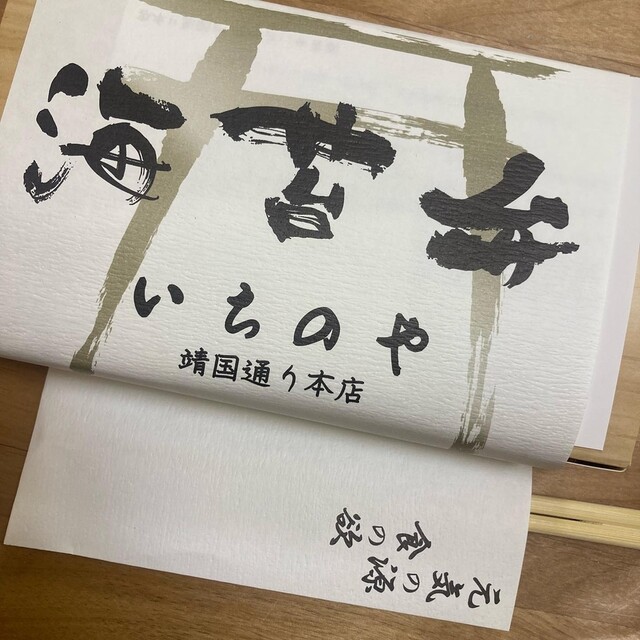 海苔弁
いちのや
靖国通り本店
元気の源
食の欲